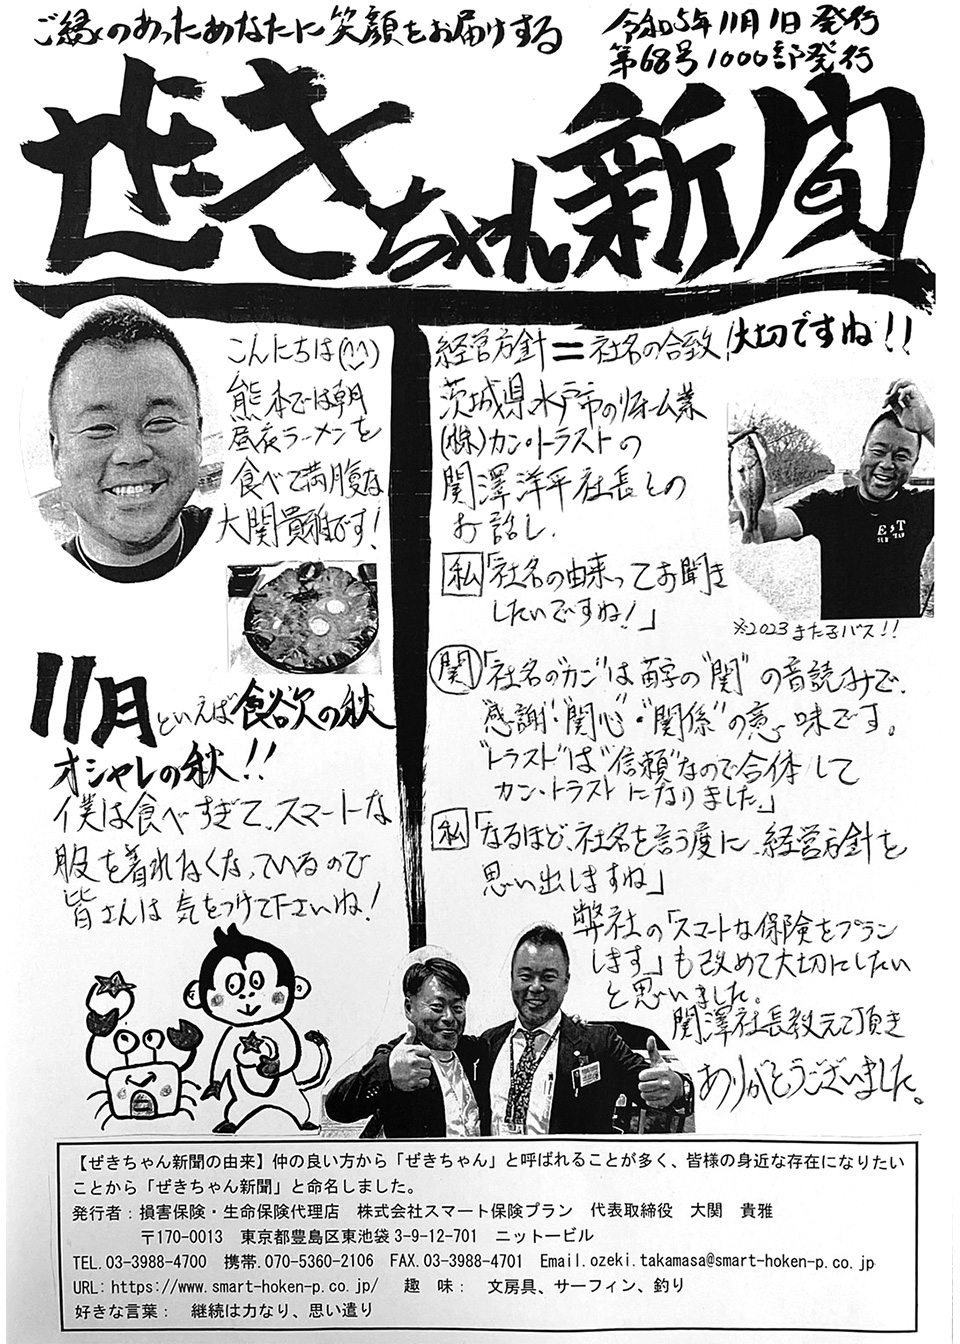 ご縁のあったあなたに笑顔をお届けする
令和5年11月1日発行
第68号1000部発行
ぜきちゃん新聞
こんにちは(^^)
熊本では朝
昼夜ラーメンを
食べて満腹な
大関貴雅です!
11月といえば食欲の秋
オシャレの秋!!
僕は食べすぎて、スマートな
服を着れなくなっているので
皆さんは気をつけて下さいね!
経営方針=社名の合致、大切ですね!!
茨城県水戸市のリフォーム業
(株)カン・トラストの
関澤洋平社長との
お話し.
私「社名の由来ってお聞き
したいですね!」
関「社名の"カン"は苗字の"関"の音読みで、
"感謝"・"関心"・"関係"の意味です。
"トラスト"は"信頼"なので合体して
カン・トラストになりました。」
私「なるほど、社名を言う度に、経営方針を
思い出しますね」
弊社の「スマートな保険をプラン
します」も改めて大切にしたい
と思いました。
関澤社長教えて頂き
ありがとうございました。
EST
※2023またコバス!!
【ぜきちゃん新聞の由来】仲の良い方から「ぜきちゃん」と呼ばれることが多く、皆様の身近な存在になりたい
ことから「ぜきちゃん新聞」と命名しました。
発行者：損害保険・生命保険代理店　株式会社スマート保険プラン　代表取締役　大関　貴雅
〒170-0013　東京都豊島区東池袋3-9-12-701　ニットービル
TEL.03-3988-4700　携帯.070-5360-2106　FAX.03-3988-4701　Email.ozeki.takamasa@smart-hoken-p.co.jp
URL：https://www.smart-hoken-p.co.jp/　趣　味：　文房具、サーフィン、釣り
好きな言葉：　継続は力なり、思い遣り